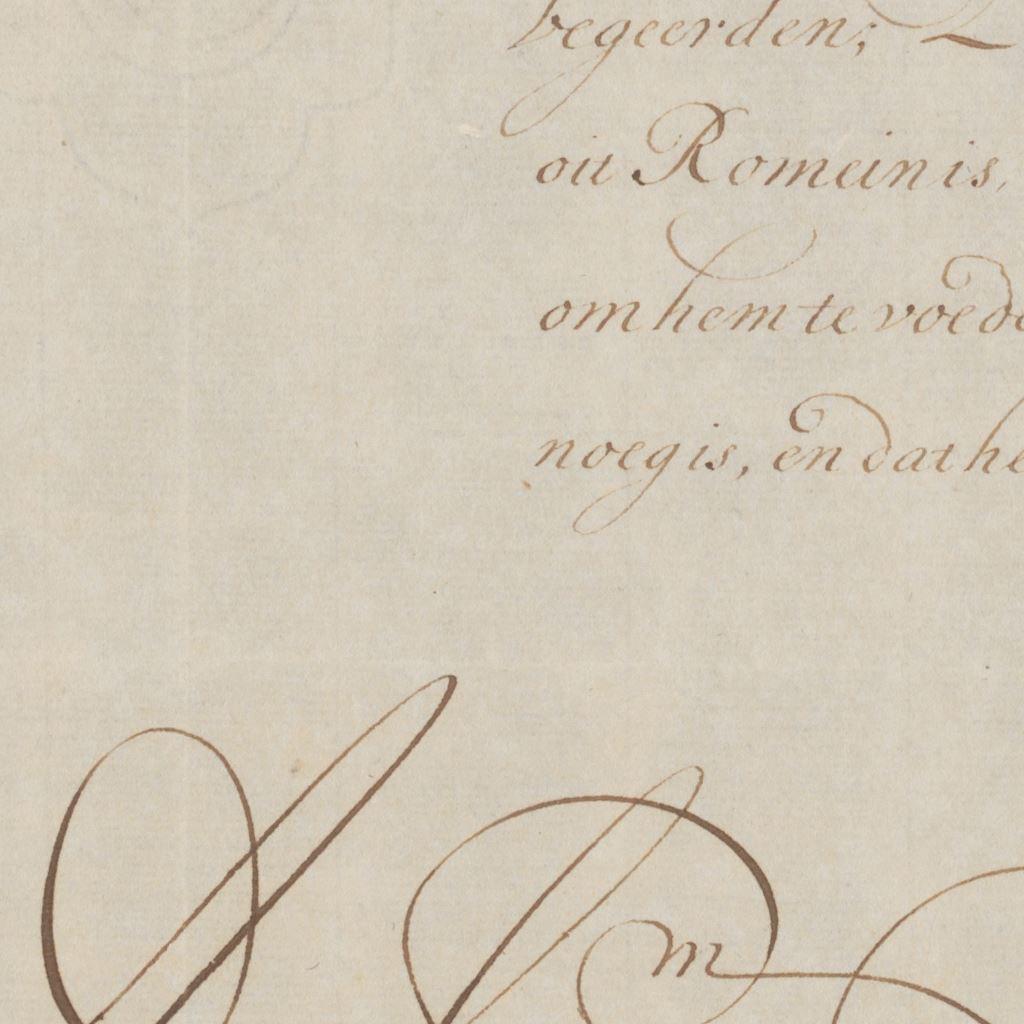 begeerden;
oit Romein is,
om hem te voede
noeg is, en dat he
m